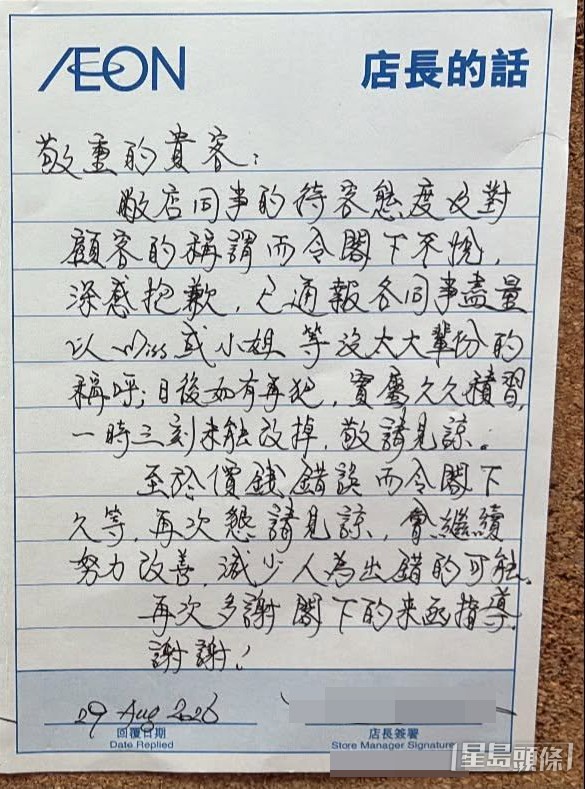 ÆON
店長的話
敬重的貴客：
敝店同事的待客態度及對
顧客的稱謂而令閣下不悅，
深感抱歉，已通報各同事盡量
以miss或小姐等沒太大輩份的
稱呼；日後如有再犯，實屬久久積習，
一時三刻未能改掉，敬請見諒。
至於價錢錯誤而令閣下
久等，再次懇請見諒，會繼續
努力改善，減少人為出錯的可能。
再次多謝閣下的來函指導，
謝謝！
29 Aug 2026
回覆日期
Date Replied
店長簽署
Store Manager Signature
星島頭條